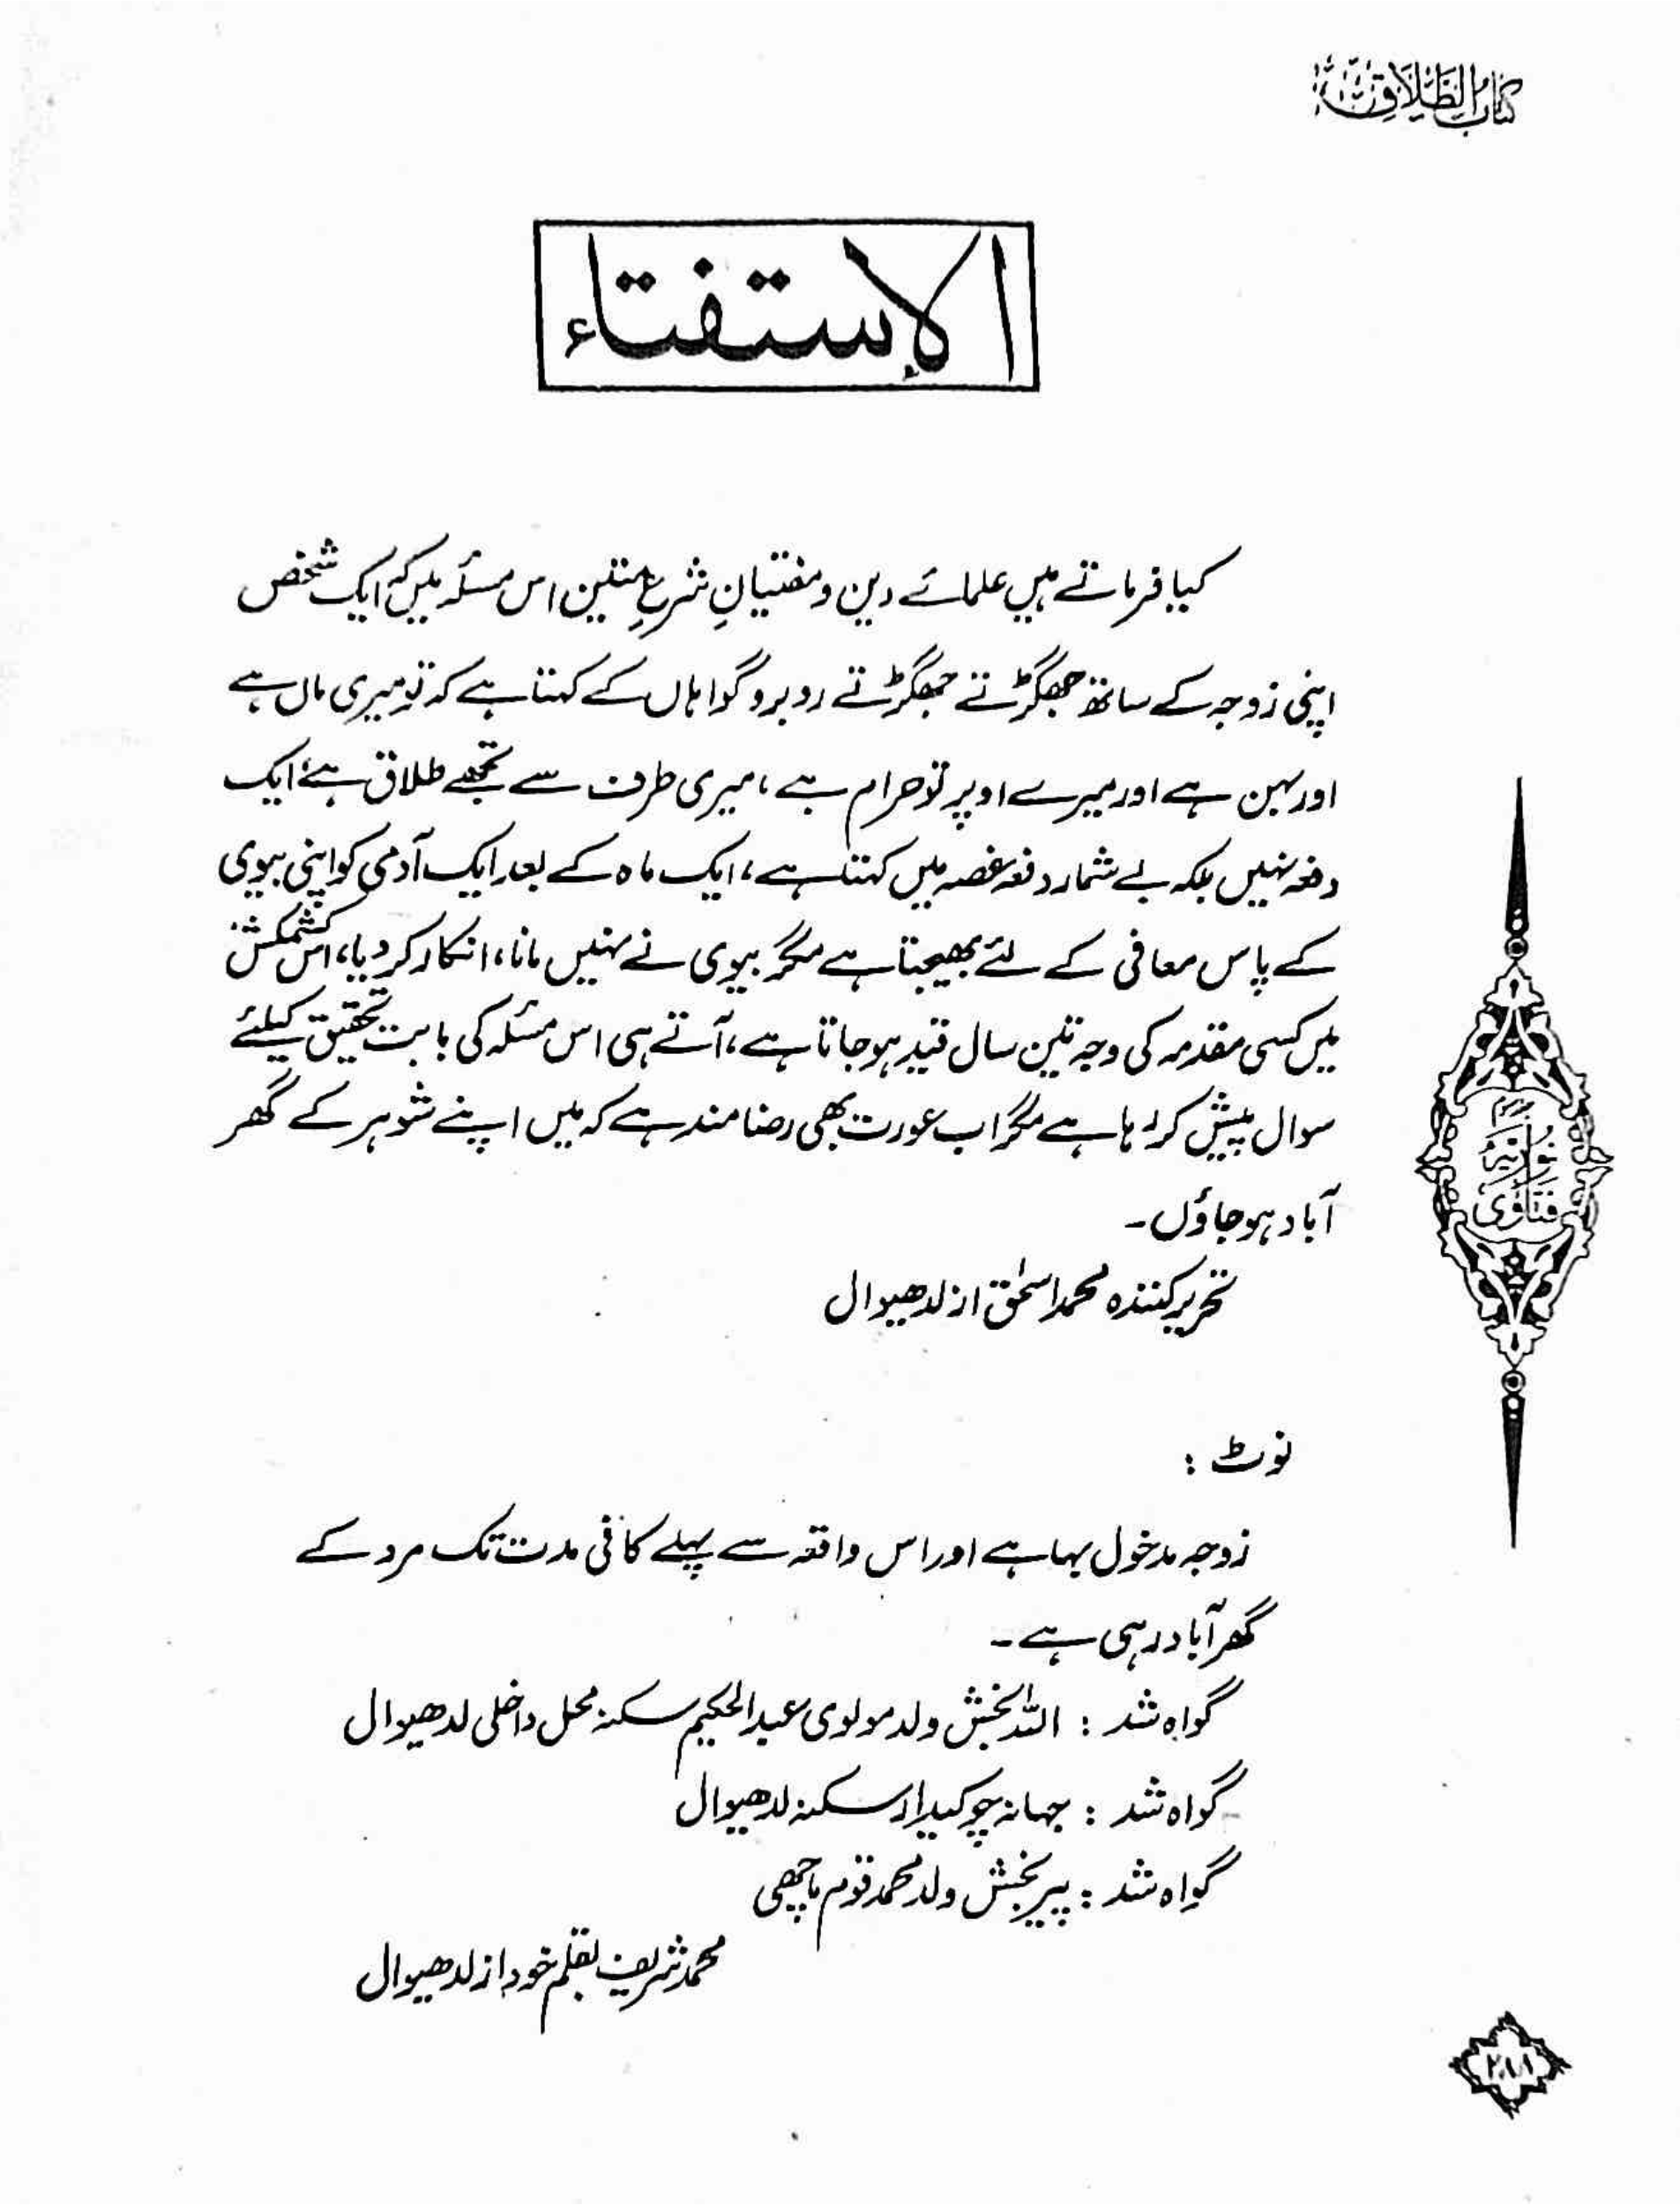 کتاب الطلاق
الإستفتاء
کیا فرماتے ہیں علمائے دین و مفتیانِ شرعِ متین اس مسئلہ میں کہ ایک شخص
اپنی زوجہ کے ساتھ جھگڑتے جھگڑتے روبرو گواہاں کے کہتا ہے کہ تو میری ماں ہے
اور بہن ہے اور میرے اوپر تو حرام ہے، میری طرف سے تجھے طلاق ہے، ایک
دفعہ نہیں بلکہ بے شمار دفعہ غصہ میں کہتا ہے، ایک ماہ کے بعد ایک آدمی کو اپنی بیوی
کے پاس معافی کے لئے بھیجتا ہے مگر بیوی نے نہیں مانا، انکار کر دیا، اس کشمکش
میں کسی مقدمہ کی وجہ تین سال قید ہو جاتا ہے، آتے ہی اس مسئلہ کی بابت تحقیق کیلئے
سوال پیش کر رہا ہے مگر اب عورت بھی رضامند ہے کہ میں اپنے شوہر کے گھر
آباد ہو جاؤں۔
تحریر کنندہ محمد اسحٰق از لدھیوال
نوٹ :
زوجہ مدخول بہا ہے اور اس واقعہ سے پہلے کافی مدت تک مرد کے
گھر آباد رہی ہے۔
گواہ شد : اللہ بخش ولد مولوی عبدالحکیم سکنہ محل داخلی لدھیوال
گواہ شد : جہانہ چوکیدار سکنہ لدھیوال
گواہ شد : پیر بخش ولد محمد قوم ماچھی
محمد شریف بقلم خود از لدھیوال
فتاویٰ نوریہ
۲۱۱